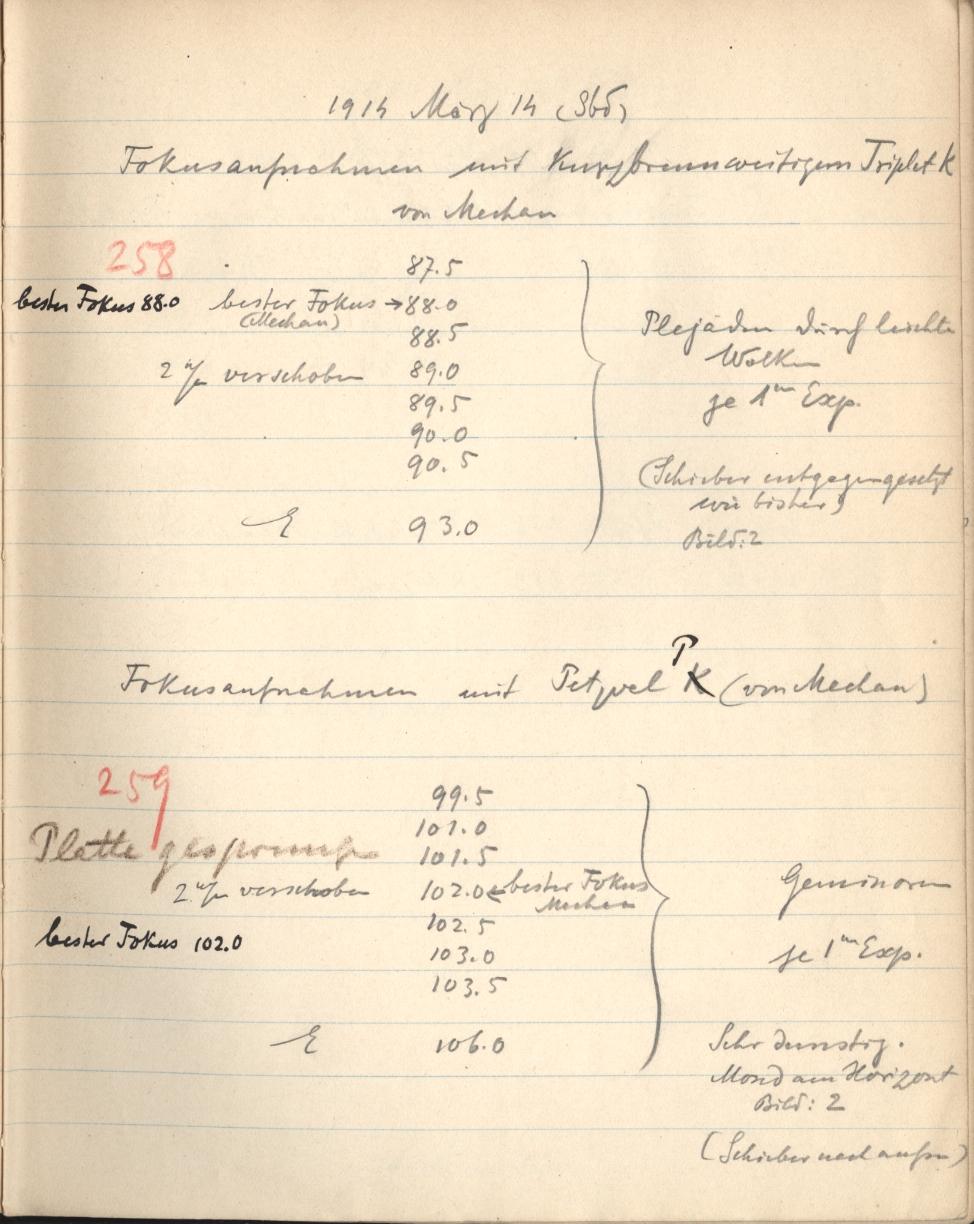 1914 März 14 (Sbd)
Fokusaufnahmen mit kurzbrennweitigem Triplet K
von Mechau
258
87.5
bester Fokus 88.0 bester Fokus → 88.0
(Mechau)
88.5
2 m/m verschoben 89.0
89.5
90.0
90.5
E 93.0
Plejaden durch leichte
Wolken
je 1m Exp.
(Schieber entgegengesetzt
wie bisher)
Bild: 2
Fokusaufnahmen mit Petzvel P K (von Mechau)
259
99.5
101.0
Platte gesprungen 101.5
2 m/m verschoben 102.0 ← bester Fokus
Mechau
bester Fokus 102.0
102.5
103.0
103.5
E 106.0
Geminoren
je 1m Exp.
Sehr dunstig.
Mond am Horizont
Bild: 2
(Schieber nach außen)